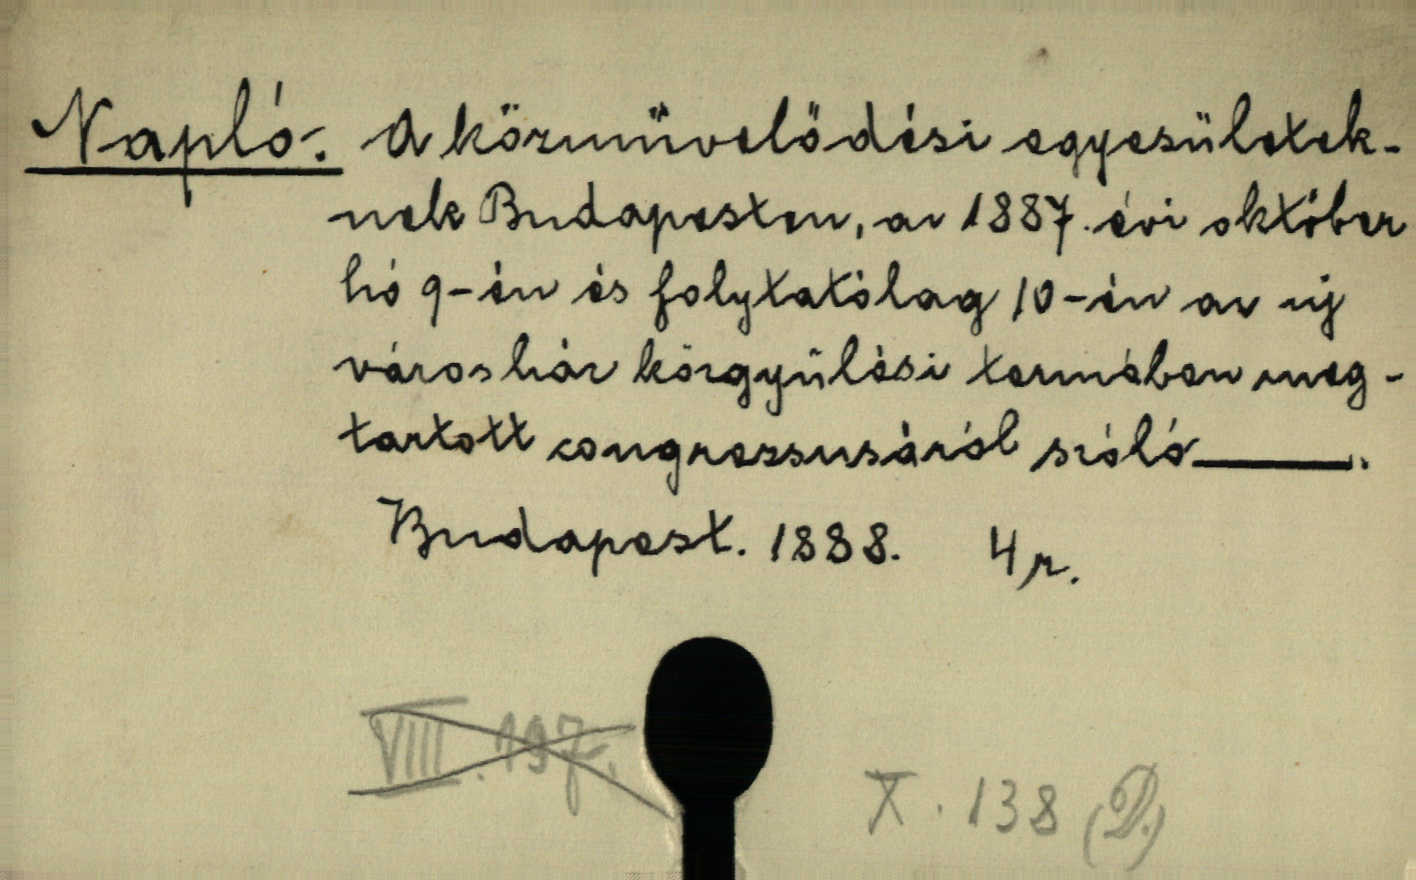 Napló. A közművelődési egyesületek-
nek Budapesten, az 1887. évi október
hó 9-én és folytatólag 10-én az új
városház közgyűlési termében meg-
tartott congressusáról szóló ———.
Budapest. 1888. 4r.
VIII. 197.
X. 138 (D.)